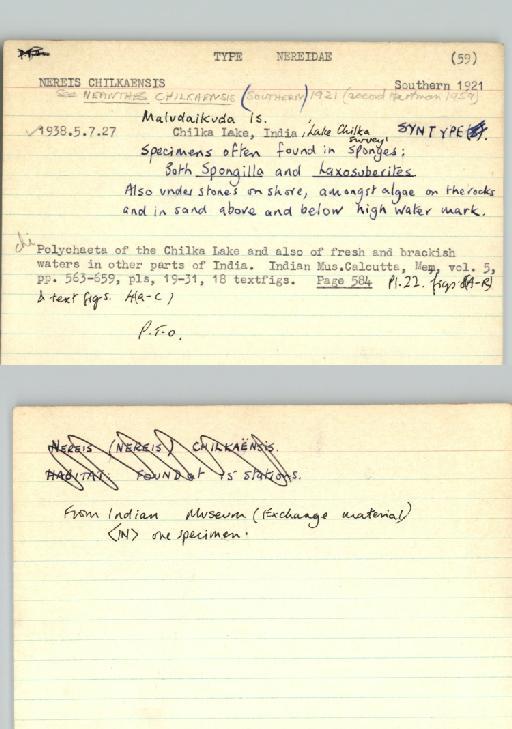 TYPE NEREIDAE (59)
NEREIS CHILKAENSIS Southern 1921
SEE NEANTHES CHILKAENSIS (SOUTHERN) 1921 (second Hartman 1959)
Maludaikuda Is.
✓1938.5.7.27 Chilka Lake, India, 'Lake Chilka Survey' SYNTYPE
Specimens often found in sponges:
Both Spongilla and Laxosuberites
Also under stones on shore, amongst algae on the rocks
and in sand above and below high water mark.
Polychaeta of the Chilka Lake and also of fresh and brackish
waters in other parts of India. Indian Mus.Calcutta, Mem, vol. 5,
pp. 563-659, pls, 19-31, 18 textfigs. Page 584 Pl.22. figs
& text figs. 4(a-c)
P.T.O.
NEREIS (NEREIS) CHILKAËNSIS.
HABITAT: FOUND at 75 stations.
From Indian Museum (Exchange material)
<IN> one specimen.